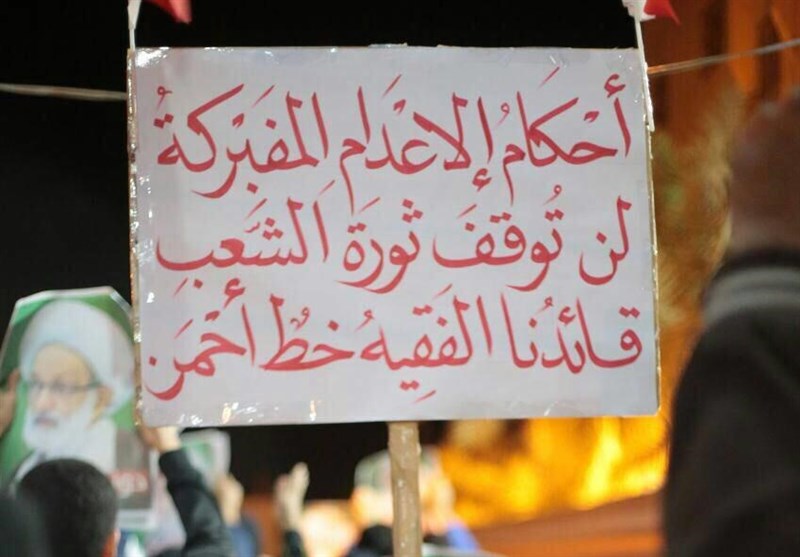 أَحْكَامُ إلاعْدَامِ المفَبْرَكةُ
لن تُوقفَ ثورَةَ الشَّعبِ
قائدُنا الفَقِيهُ خطٌ أحْمَرْ